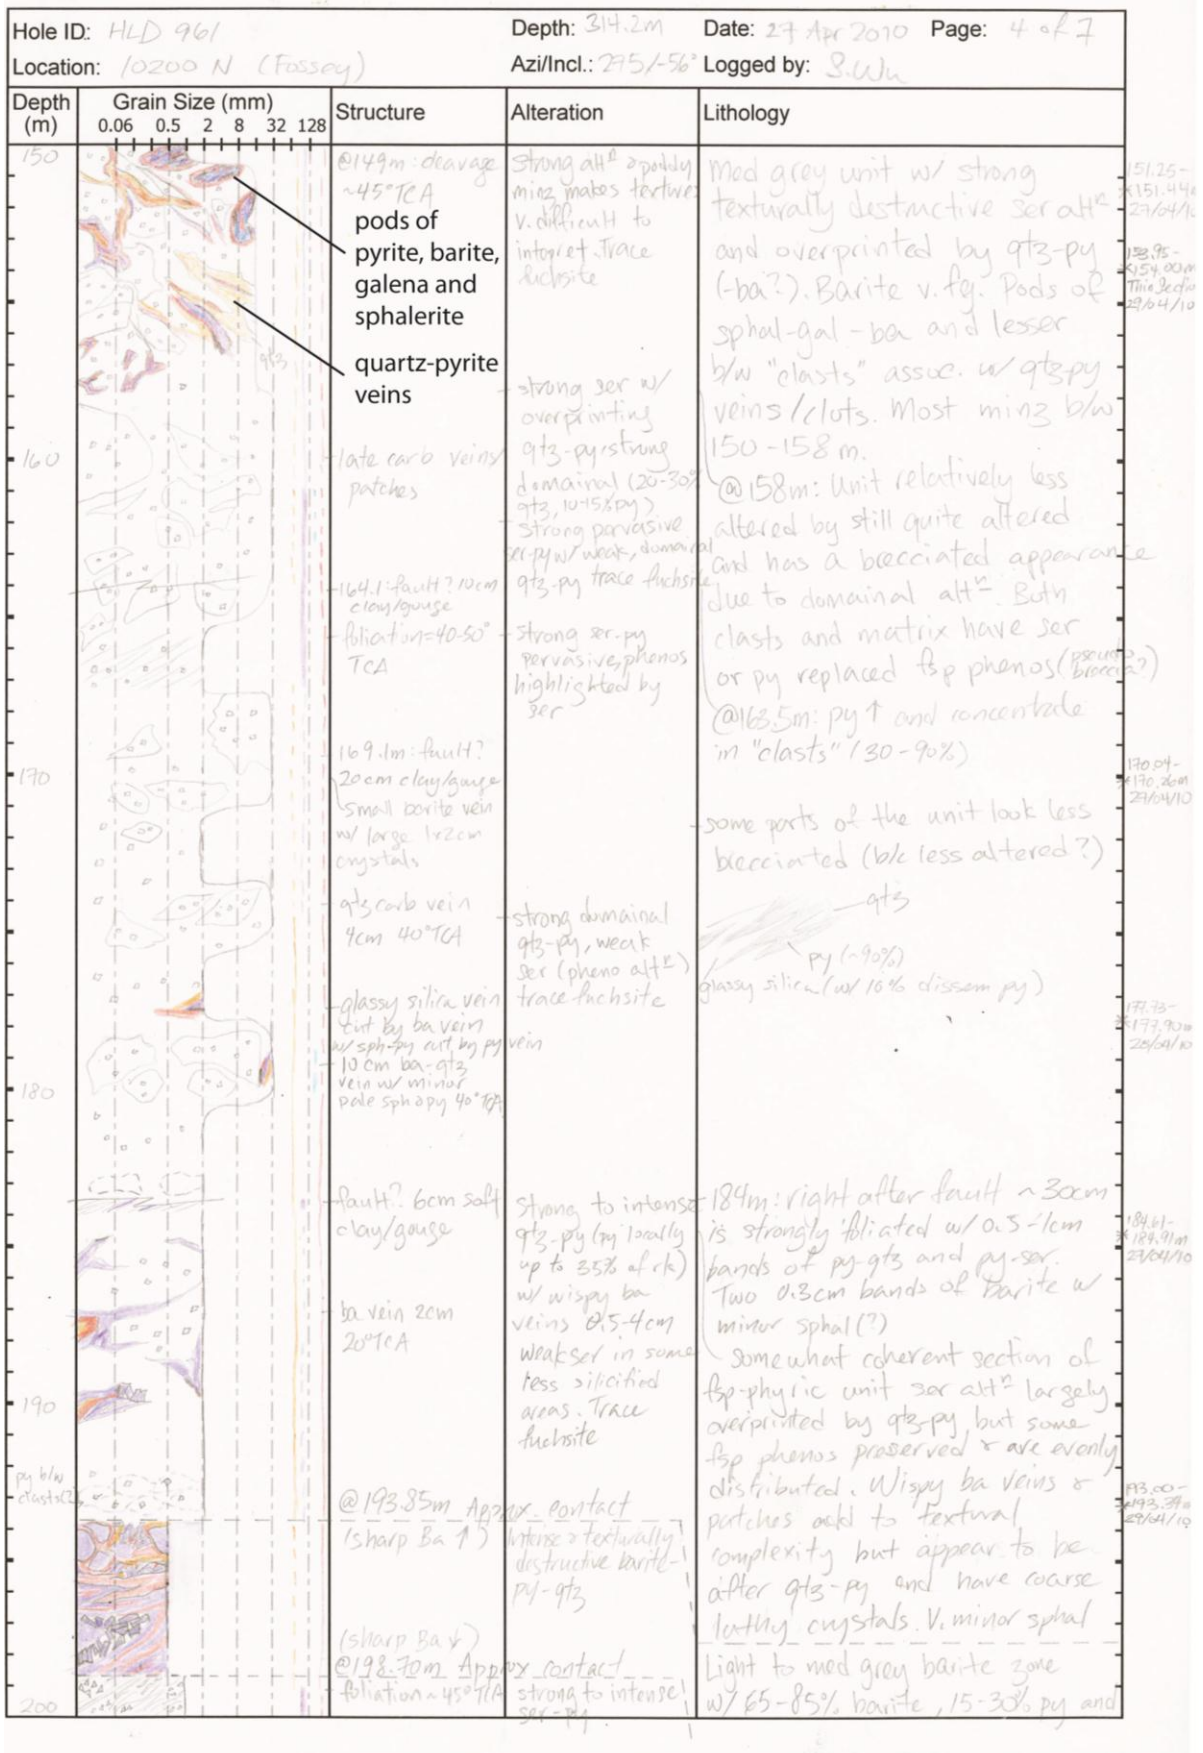 Hole ID: HLD 961
Depth: 314.2m
Date: 27 Apr 2010
Page: 4 of 7
Location: 10200 N (Fossey)
Azi/Incl.: 295/-56°
Logged by: S.Wu
Depth (m)
Grain Size (mm)
0.06 0.5 2 8 32 128
Structure
Alteration
Lithology
150
160
170
180
190
200
qtz
py b/w
clasts(?)
pods of
pyrite, barite,
galena and
sphalerite
quartz-pyrite
veins
@149m: cleavage
~45° TCA
late carb veins/
patches
164.1: fault? 10cm
clay/gouge
foliation=40-50°
TCA
169.1m: fault?
20cm clay/gouge
small barite vein
w/ large 1x2cm
crystals
qtz carb vein
4cm 40°TCA
glassy silica vein
cut by ba vein
w/ sph-py cut by py vein
10 cm ba-qtz
vein w/ minor
pale sph & py 40° TCA
fault? 6cm soft
clay/gouge
ba vein 2cm
20°TCA
@193.85m Approx. contact
(sharp Ba ↑)
(sharp Ba ↓)
@198.70m Approx contact
foliation ~45°TCA
strong altⁿ & poddy
minz makes textures
v. difficult to
interpret. Trace
fuchsite
strong ser w/
overprinting
qtz-py, strong
domainal (20-30%
qtz, 10-15% py)
strong pervasive
ser-py w/ weak, domainal
qtz-py trace fuchsite
strong ser-py
pervasive, phenos
highlighted by
ser
strong domainal
qtz-py, weak
ser (pheno altⁿ)
trace fuchsite
Strong to intense
qtz-py (py locally
up to 35% of rk)
w/ wispy ba
veins 0.5-4cm
weak ser in some
less silicified
areas. Trace
fuchsite
Intense & texturally
destructive barite-
py-qtz
strong to intense
ser-py
Med grey unit w/ strong
texturally destructive ser altⁿ
and overprinted by qtz-py
(-ba?). Barite v. fg. Pods of
sphal-gal-ba and lesser
b/w "clasts" assoc. w/ qtz-py
veins/clots. Most minz b/w
150-158 m.
@158m: Unit relatively less
altered by still quite altered
and has a brecciated appearance
due to domainal altⁿ. Both
clasts and matrix have ser
or py replaced fsp phenos (pseudo
breccia?)
@163.5m: py ↑ and concentrate
in "clasts" (30-90%)
some parts of the unit look less
brecciated (b/c less altered?)
qtz
py (~90%)
glassy silica (w/ 10% dissem py)
184m: right after fault ~30cm
is strongly foliated w/ 0.5-1cm
bands of py-qtz and py-ser.
Two 0.3cm bands of Barite w
minor sphal (?)
Somewhat coherent section of
fsp-phyric unit ser altⁿ largely
overprinted by qtz-py, but some
fsp phenos preserved & are evenly
distributed. Wispy ba veins &
patches add to textural
complexity but appear to be
after qtz-py and have coarse
lathy crystals. V. minor sphal
Light to med grey barite zone
w/ 65-85% barite, 15-30% py and
151.25-
*151.44m
27/04/10
153.95-
*154.00m
Thin Section
29/04/10
170.04-
*170.26m
27/04/10
177.73-
*177.90m
184.61-
*184.91m
27/04/10
193.00-